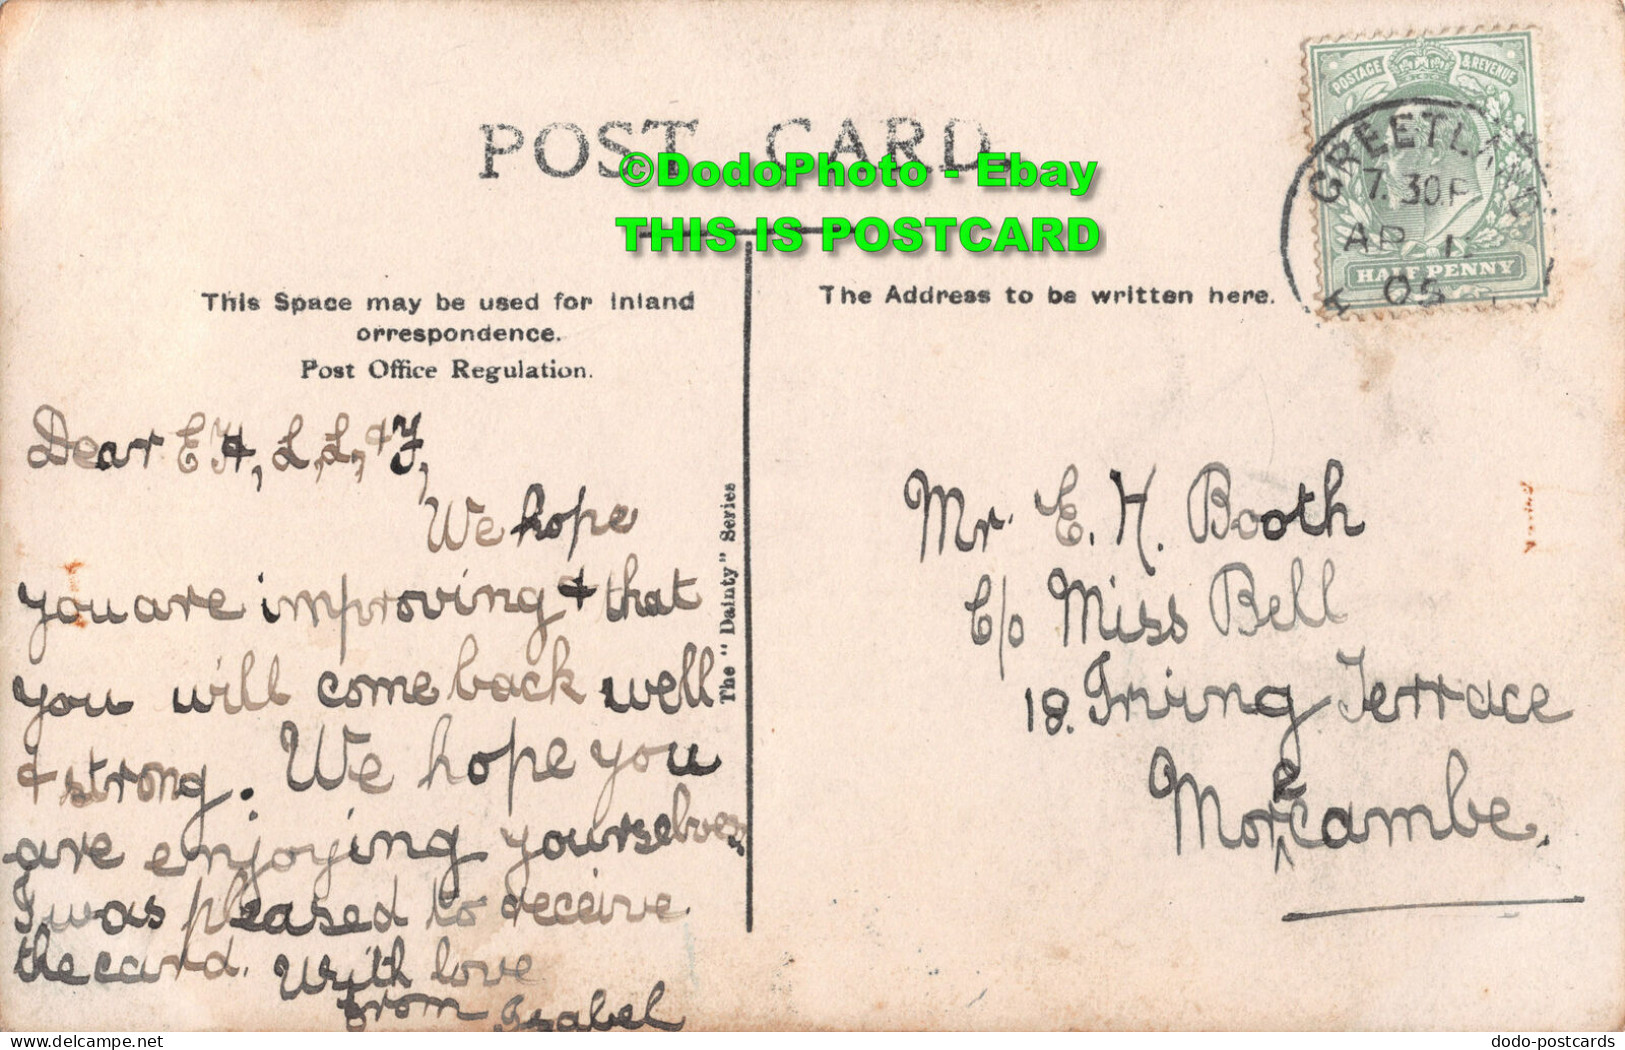 POST CARD.
©DodoPhoto - Ebay
THIS IS POSTCARD
POSTAGE & REVENUE
HALF PENNY
GREETLAND
7.30 P
AP 1
05
This Space may be used for Inland
orrespondence.
Post Office Regulation.
The Address to be written here.
The "Dainty" Series
Dear E H, L, L, & F,
We hope
you are improving & that
you will come back well
& strong. We hope you
are enjoying yourselves.
I was pleased to receive
the card. With love
from Isabel
Mr. E. H. Booth
C/o Miss Bell
18. Irving Terrace
Morecambe.
delcampe.net
dodo-postcards